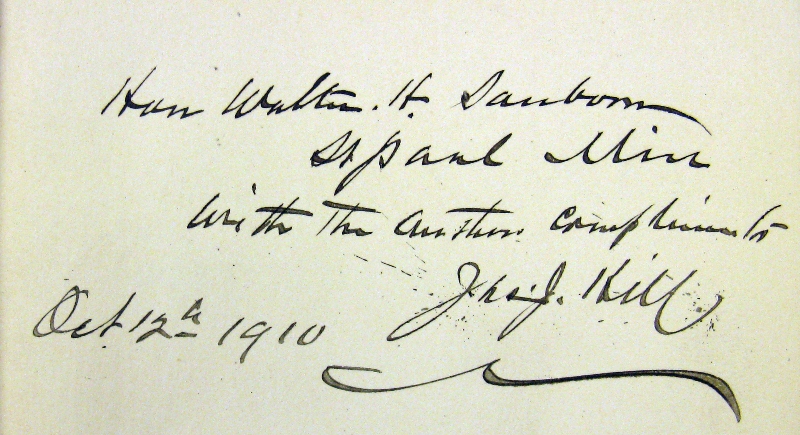 Hon Walter. H. Sanborn
St paul Minn
with the authors compliments
Jas. J. Hill
Oct 12th 1910